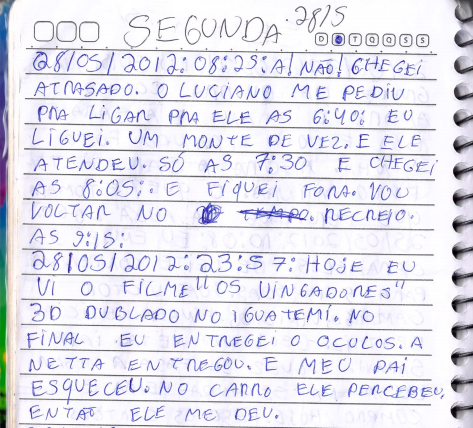 SEGUNDA. 28/5
D S T Q Q S S
28/05/2012: 08:25: A! NÃO! CHEGEI
ATRASADO. O LUCIANO ME PEDIU
PRA LIGAR PRA ELE AS 6:40: EU
LIGUEI. UM MONTE DE VEZ. E ELE
ATENDEU. SÓ AS 7:30 E CHEGEI
AS 8:05:. E FIQUEI FORA. VOU
VOLTAR NO RECREIO.
AS 9:15:
28/05/2012: 23:57: HOJE EU
VI O FILME "OS VINGADORES"
3D DUBLADO NO IGUATEMI. NO
FINAL EU ENTREGEI O OCULOS. A
NETTA ENTREGOU. E MEU PAI
ESQUECEU. NO CARRO ELE PERCEBEU,
ENTAO ELE ME DEU.